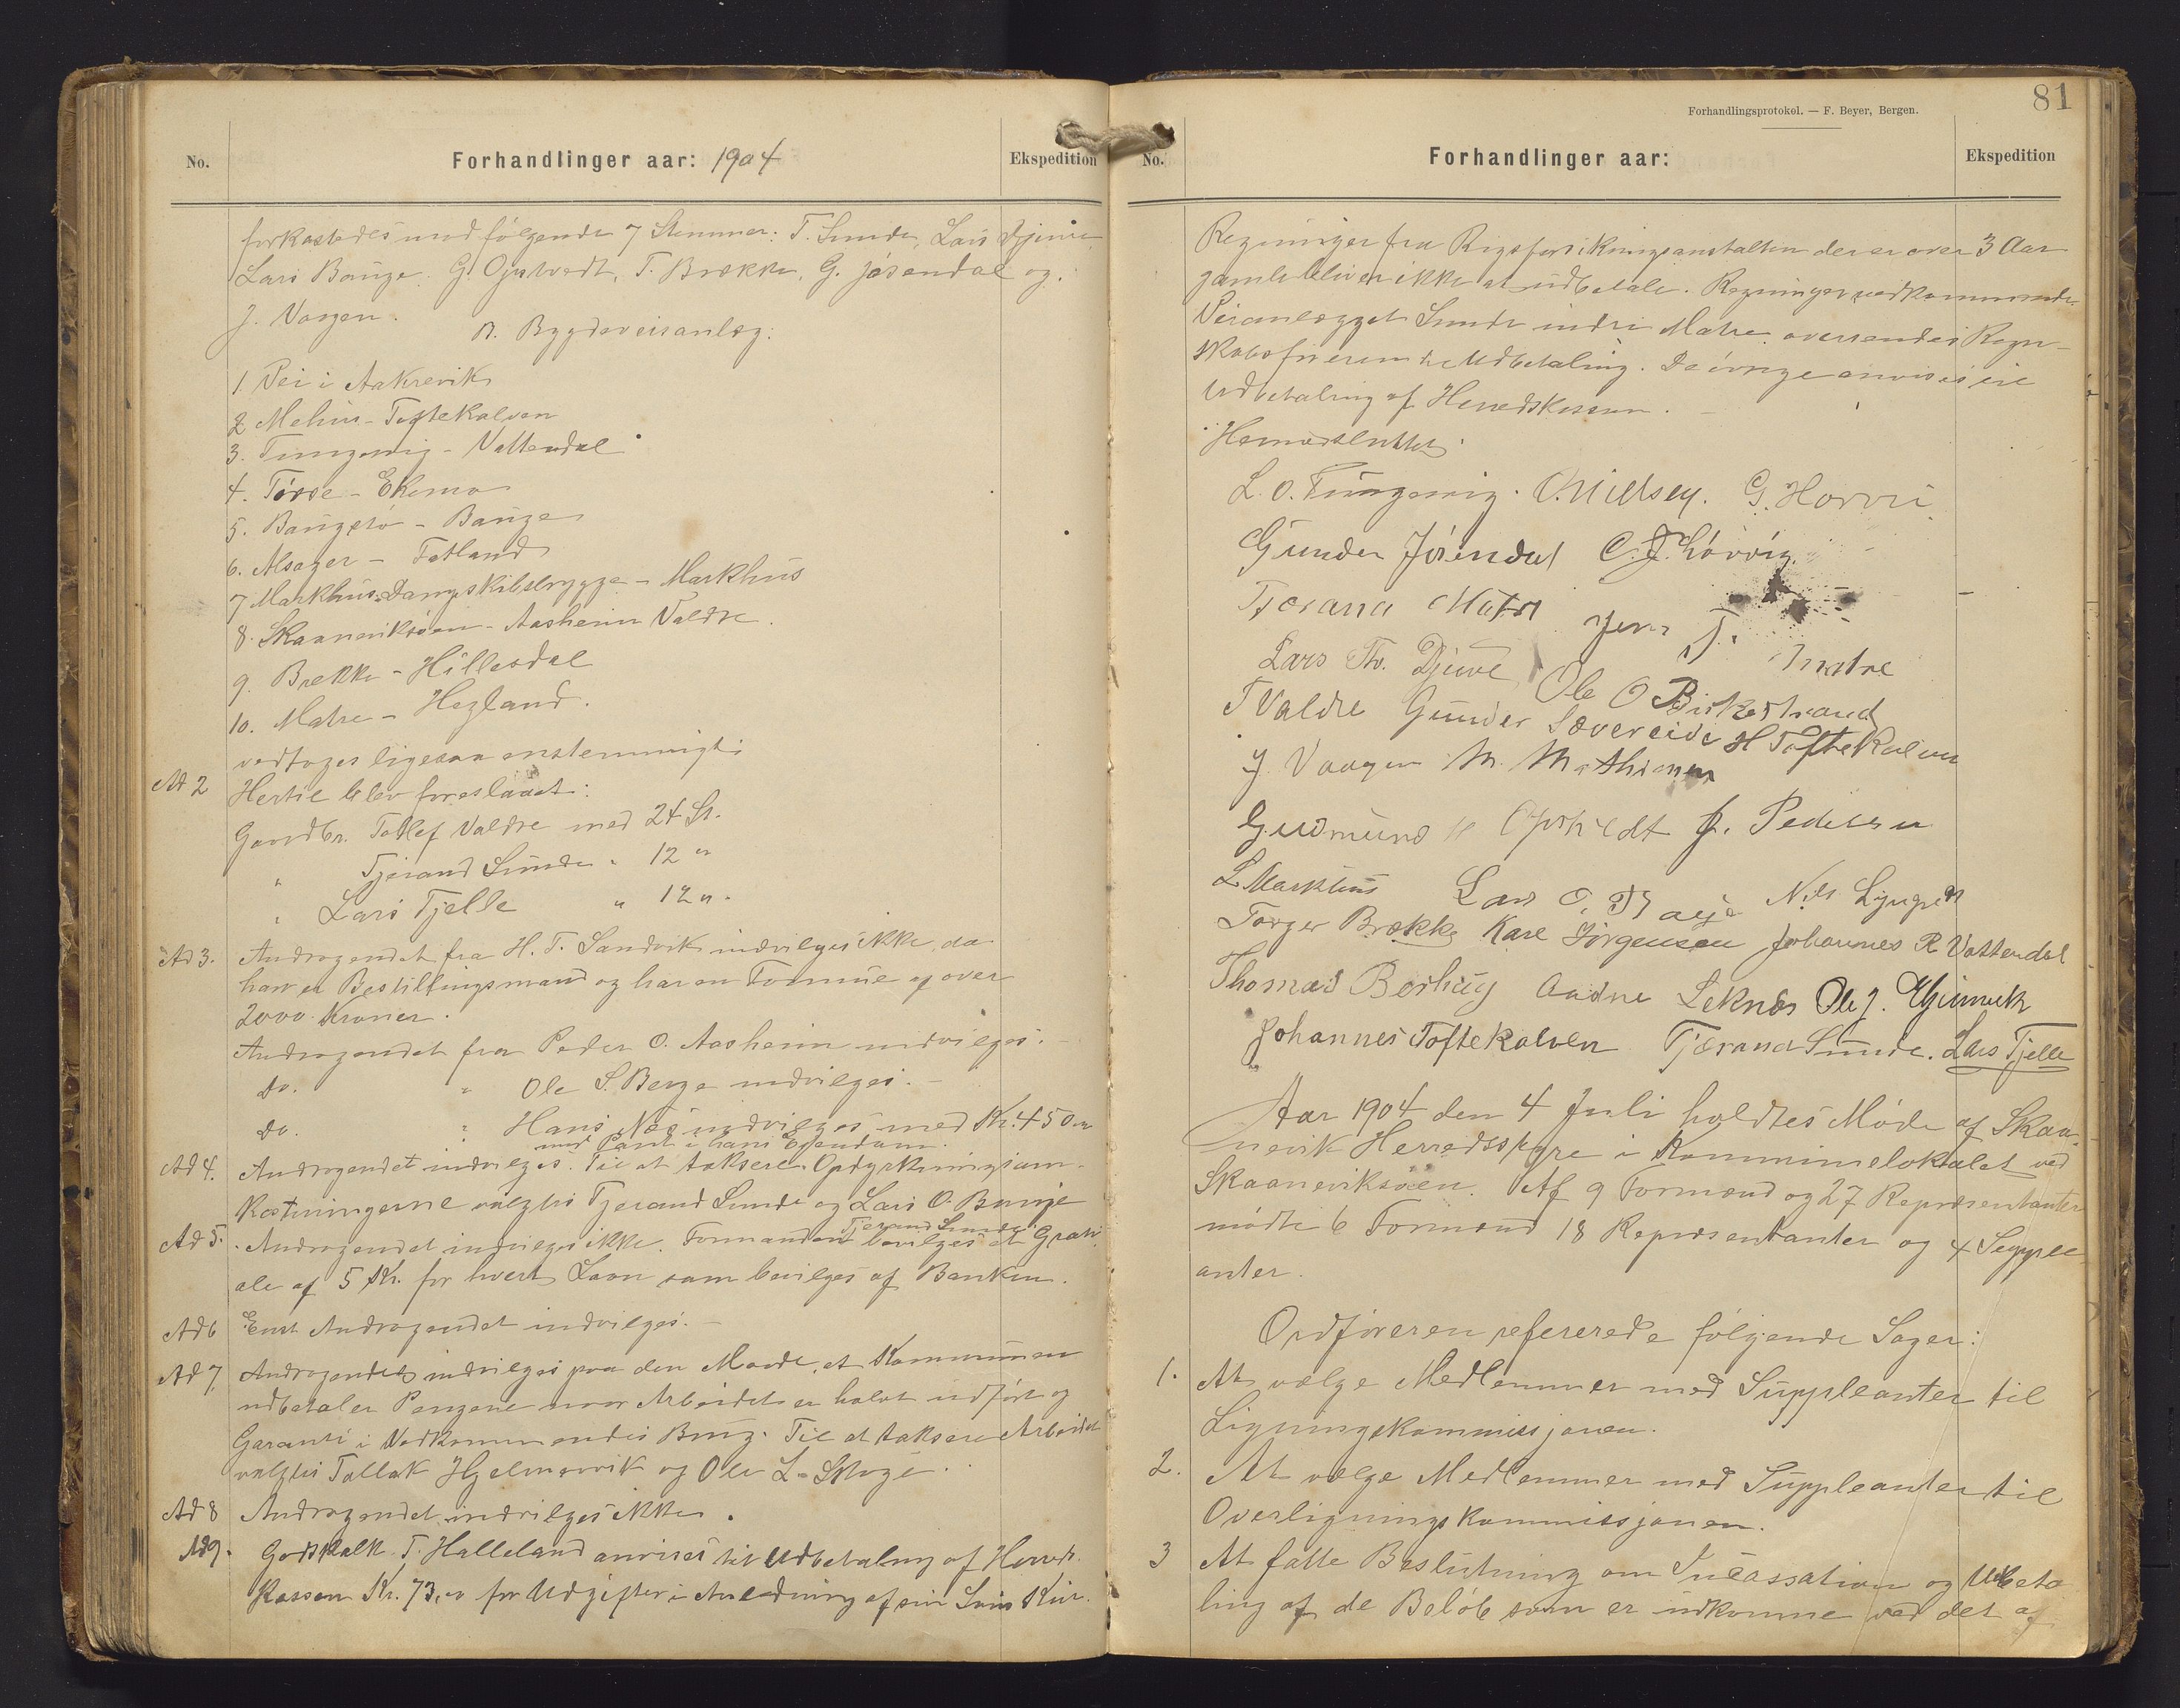 No.
Forhandlinger aar: 1904
Ekspedition
forkastedes med følgende 7 Stemmer: T. Sunde, Lars Djuve
Lars Bauge. G. Opstvedt, T. Brække, G. Jøsendal og
J. Vaagen.
B. Bygdeveisanlæg:
1. Vei i Aakrevik
2 Mehus - Toftekalven
3. Tungesvig - Vattendal
4. Tøsse - Ekemo
5. Baugstø - Bauge
6. Alsager - Fatland
7 Markhus Dampskibsbrygge - Markhus
8. Skaaneviksøen - Aasheim Valdre.
9. Brekke - Hillesdal
10. Matre - Hogland.
vedtoges ligesaa enstemmigt
Ad 2 Hertil blev foreslaaet:
Gaardbr. Tollef Valdre med 24 St.
" Tjerand Sunde " 12 "
" Lars Tjelle " 12 "
Ad 3. Andragendet fra H. T. Sandvik indvilges ikke, da
han er Bestillingsmand og har en Formue af over
2000 Kroner.
Andragendet fra Peder O. Aasheim indvilges. -
do. " Ole S. Berge indvilges. -
do. " Hans Næs indvilges med Kr. 450 "
med Pant i hans Eiendom.
Ad 4. Andragendet indvilges. Til at taksere Opdyrkningsom-
kostningerne valgtes Tjerand Sunde og Lars O. Bauge
Tjerand Sunde
Ad 5. Andragendet indvilges ikke. Formanden bevilges et Grati-
ale af 5 Kr. for hvert Laan som bevilges af Banken.
Ad 6 Enst Andragendet indvilges. -
Ad 7. Andragendet indvilges paa den Maade, at Kommunen
udbetaler Pengene naar Arbeidet er halvt udført og
Garanti i Vedkommendes Brug. Til at taksere Arbeidet
valgtes Tollak Hjelmervik og Ole L. Skoge.
Ad 8 Andragendet indvilges ikke.
Ad 9. Godskalk T. Halleland anvises til Udbetaling af Herreds
Kassen Kr. 73, for Udgifter i Anledning af sin Søns Kur.
Forhandlingsprotokol. — F. Beyer, Bergen.
81
No.
Forhandlinger aar:
Ekspedition
Regninger fra Rigsforsikringsanstalten der er over 3 Aar
gamle bliver ikke at udbetale. Regninger vedkommende
Veianlægget Sunde indre Matre oversendes Regn-
skabsføreren til Udbetaling. De øvrige anvises til
Udbetaling af Herredskassen. -
Hermed sluttet
L. O. Tungesvig. O. Nielsen. G. Horvei
Gunder Jøsendal C. J. Løvvig.
Tjerand Matre Jens J. Matre
Lars Th. Djuve Ole O Birkestrand
T Valdre Gunder Sævereide H Toftekalven
J. Vaagen M. Mathiesen
Gudmund Opstvedt J. Pedersen
L Markhus Lars O. Bauge Nils Ljugen
Torger Brække Karl Jørgensen Johannes R Vattendal
Thomas Borhaug Aadne Leknes Ole J.
Johannes Toftekalven Tjerand Sunde. Lars Tjelle
Aar 1904 den 4 Juli holdtes Møde af Skaa-
nevik Herredsstyre i Kommunelokalet ved
Skaaneviksøen. Af 9 Formænd og 27 Repræsentanter
mødte 6 Formænd 18 Repræsentanter og 4 Supple-
anter.
Ordføreren refererede følgende Sager:
1. At vælge Medlemmer med Suppleanter til
Ligningskommissjonen.
2. At vælge Medlemmer med Suppleanter til
Overligningskommissjonen.
3 At fatte Beslutning om Incassation og Udbeta
ling af de Beløb som er indkomne ved det af